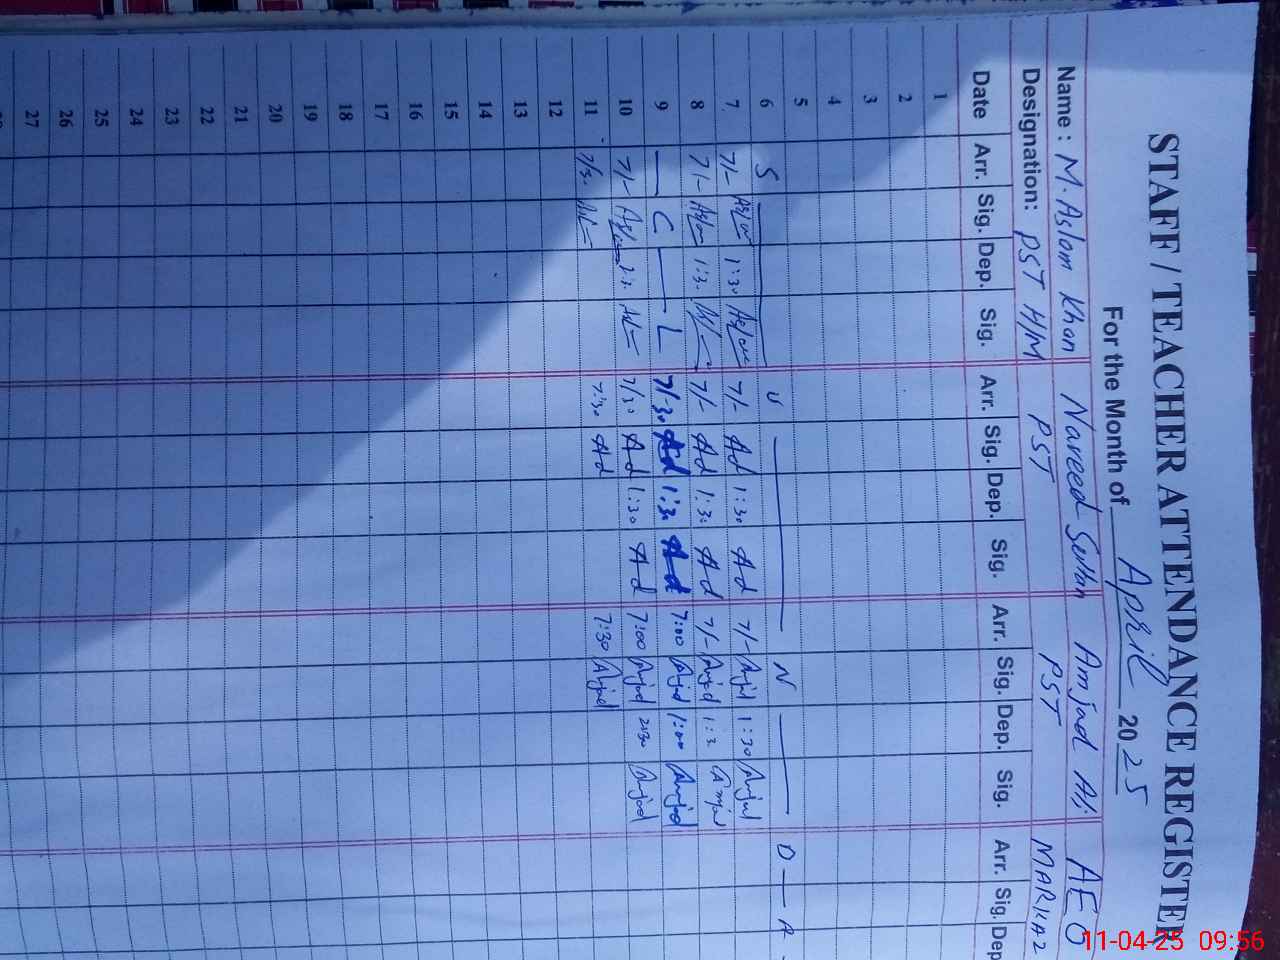 STAFF / TEACHER ATTENDANCE REGISTER
For the Month of April 2025
Name : M. Aslam Khan Naveed Sultan Amjad Ali AEO
Designation: PST H/M PST PST MARKAZ
Date Arr. Sig. Dep. Sig. Arr. Sig. Dep. Sig. Arr. Sig. Dep. Sig. Arr. Sig. Dep
1
2
3
4
5
6 S U N D A
7 7/- Aslam 1:30 Aslam 7/- Ad 1:30 Ad 7/- Amjad 1:30 Amjad
8 7/- Aslam 1:3. 7/- Ad 1:3. Ad 7/- Amjad 1:3. Amjad
9 C L 7/-30 Ad 1:3. Ad 7:00 Amjad 1:00 Amjad
10 7/- Aslam 7/30 Ad 1:30 Ad 7:00 Amjad Amjad
11 7/3. 7:30 Ad 7:30 Amjad
12
13
14
15
16
17
18
19
20
21
22
23
24
25
26
27
28
11-04-25 09:56